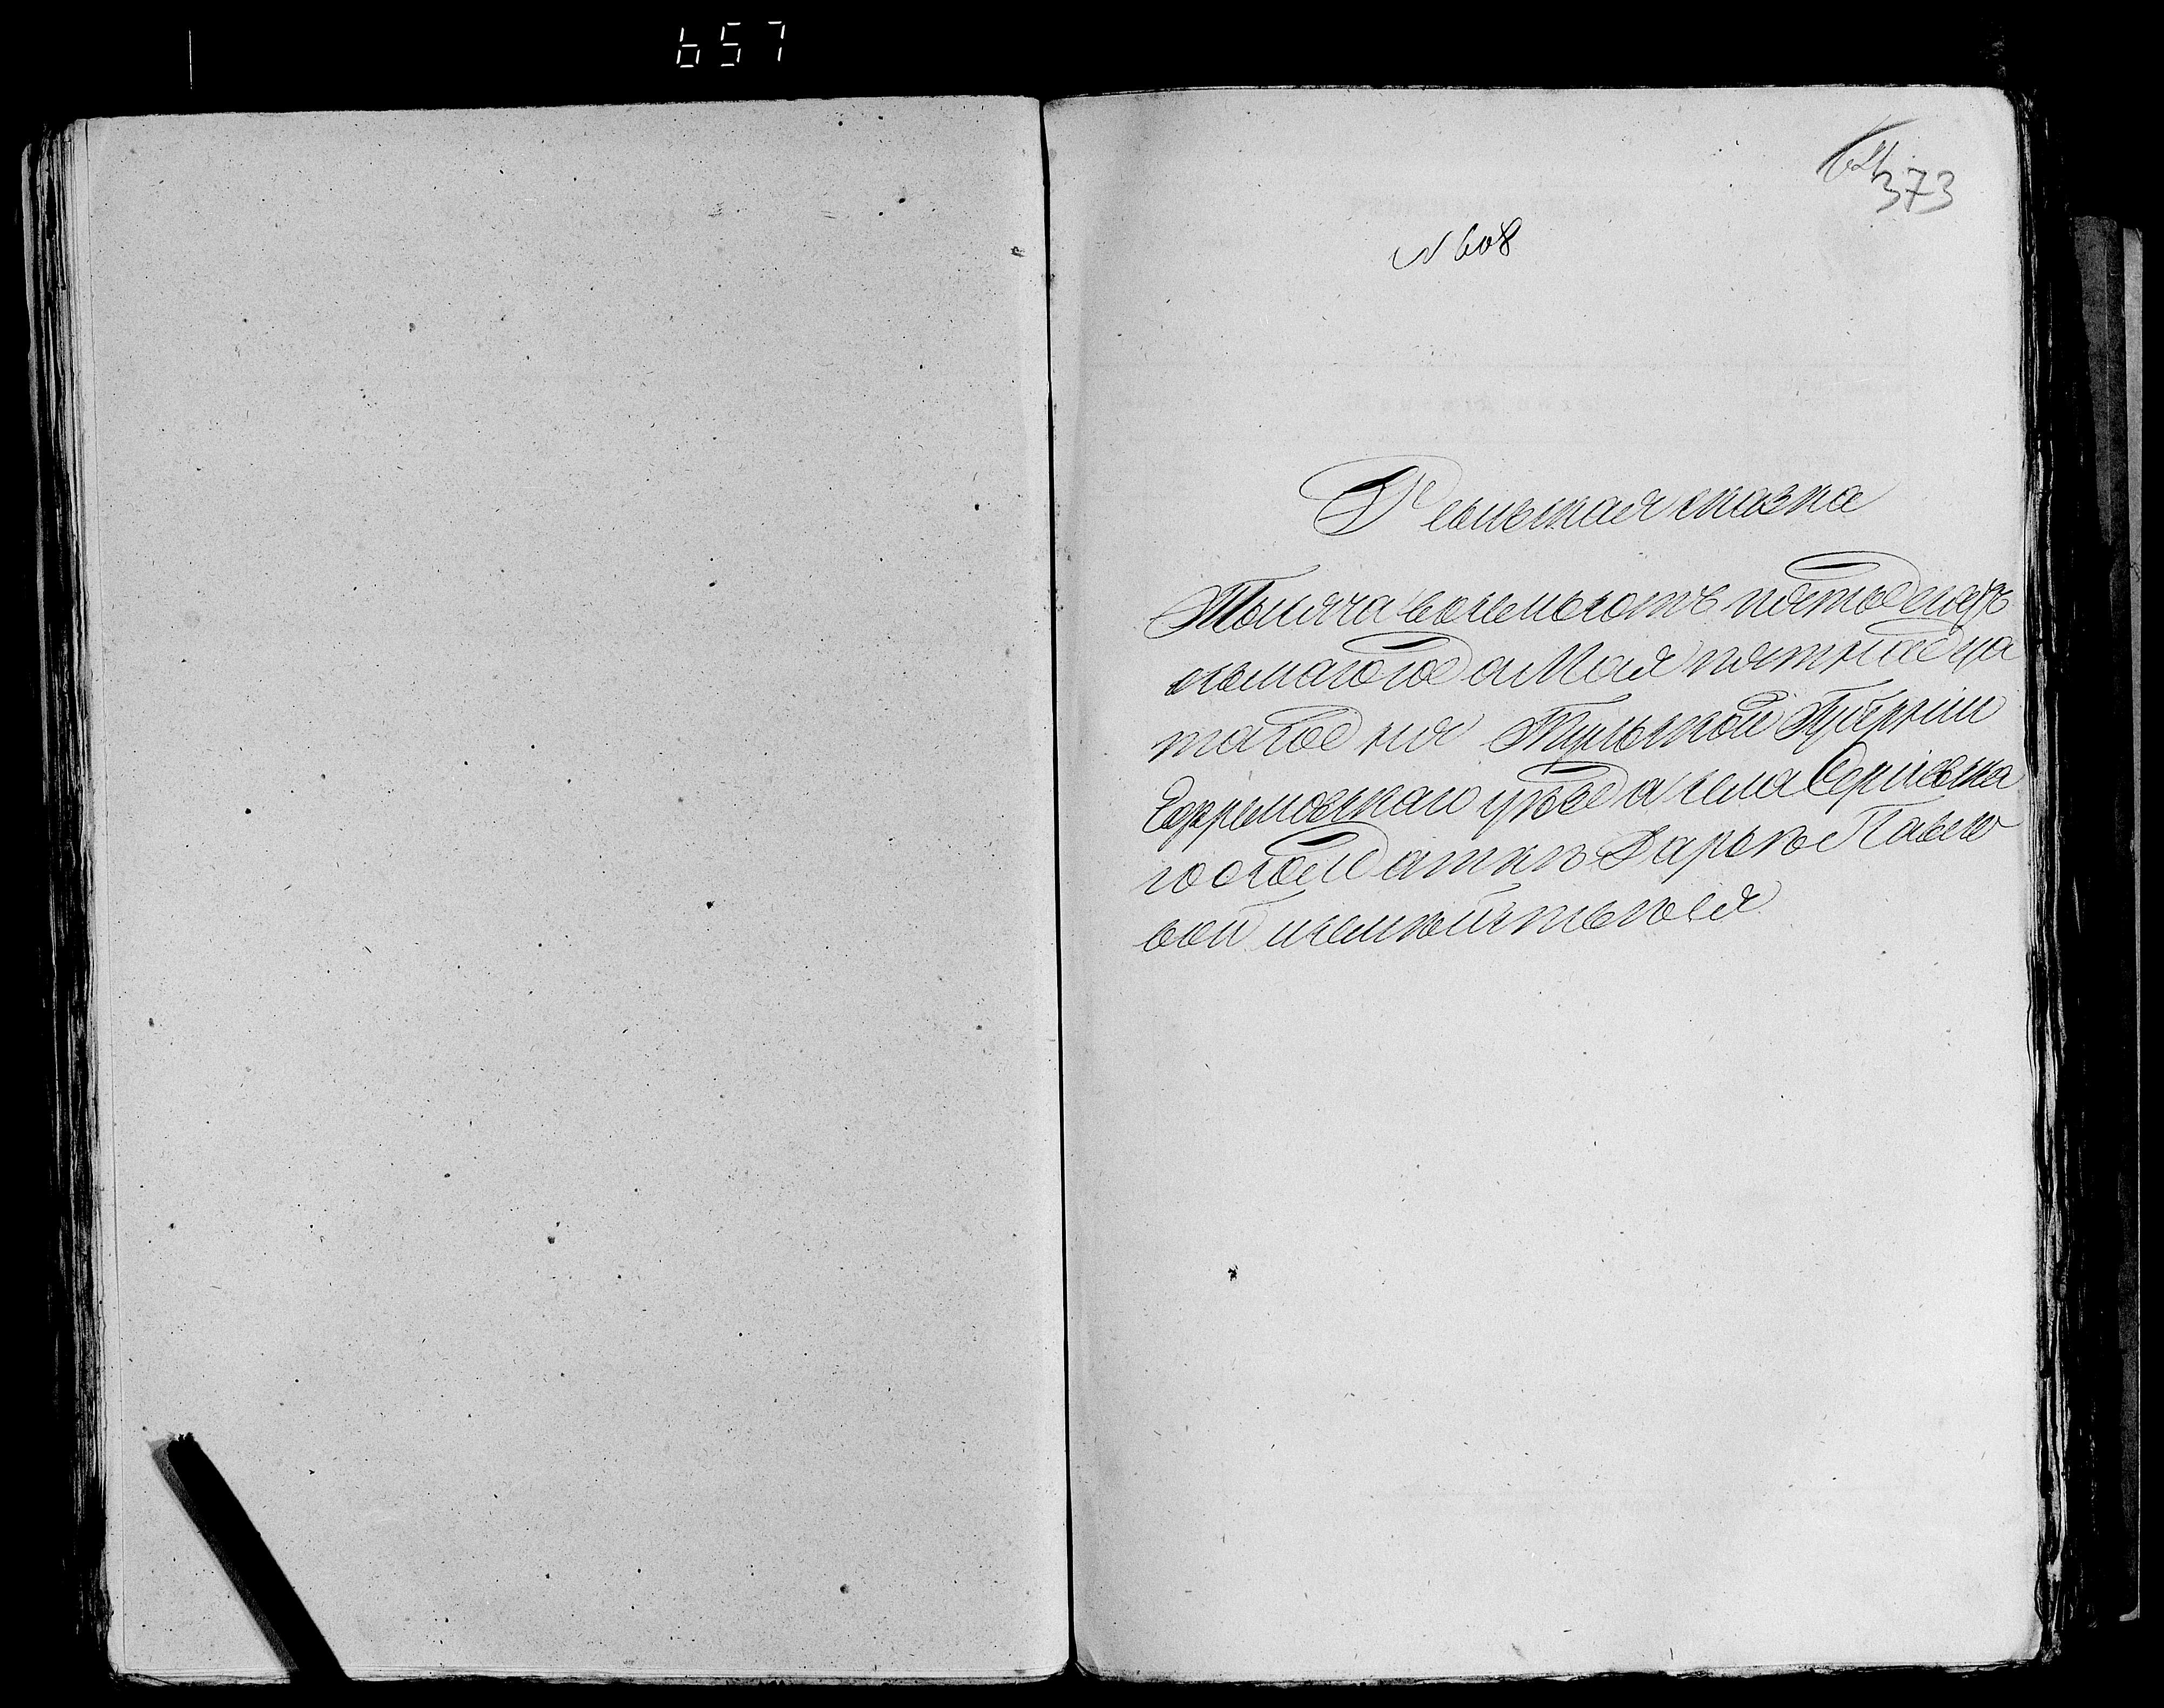 657
373
N 608
Ревизская сказка
Тысяча восемьсотъ пятьдесятъ
осьмаго года Мая пятнадца
таго дня Тульской Губерніи
Ефремовскаго уѣзда села Сергіевска
го солдатки Дарьи Павло
вой